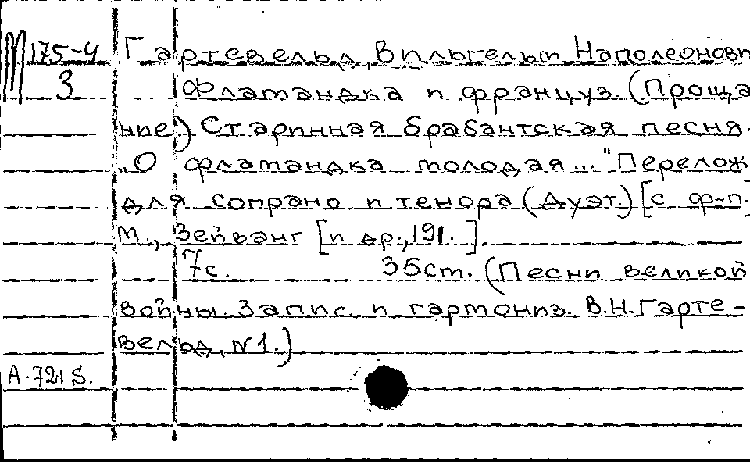 М 175-4 Гартевельд, Вильгельм Наполеонови
3 Фламандка и француз. (Проща
ние.) Старинная брабантская песня.
"О фламандка молодая..." Перелож
для сопрано и тенора (Дуэт.) [с ф-п.
М., Зейванг [и др., 191. ].
7с. 35см. (Песни великой
войны. Запис. и гармониз. В.Н. Гарте-
вельд, №1.)
А.721 S.